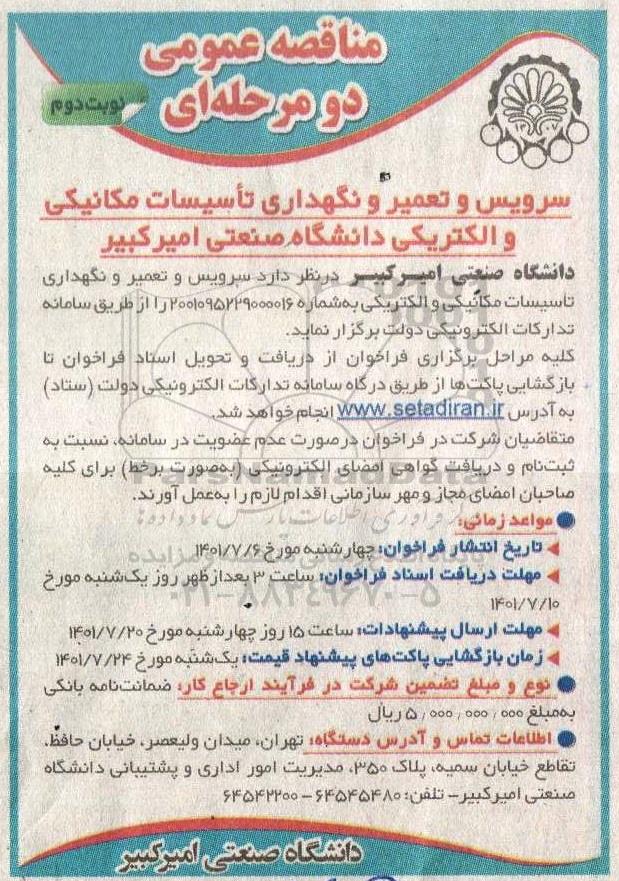 مناقصه عمومی
دو مرحله‌ای
نوبت دوم
سرویس و تعمیر و نگهداری تأسیسات مکانیکی
و الکتریکی دانشگاه صنعتی امیرکبیر
دانشگاه صنعتی امیرکبیر درنظر دارد سرویس و تعمیر و نگهداری
تأسیسات مکانیکی و الکتریکی به‌شماره ۲۰۰۱۰۹۵۲۲۹۰۰۰۰۱۶ را از طریق سامانه
تدارکات الکترونیکی دولت برگزار نماید.
کلیه مراحل برگزاری فراخوان از دریافت و تحویل اسناد فراخوان تا
بازگشایی پاکت‌ها از طریق درگاه سامانه تدارکات الکترونیکی دولت (ستاد)
به آدرس www.setadiran.ir انجام خواهد شد.
متقاضیان شرکت در فراخوان درصورت عدم عضویت در سامانه، نسبت به
ثبت‌نام و دریافت گواهی امضای الکترونیکی (به‌صورت برخط) برای کلیه
صاحبان امضای مجاز و مهر سازمانی اقدام لازم را به‌عمل آورند.
ParsNamadData
مواعد زمانی:
تاریخ انتشار فراخوان: چهارشنبه مورخ ۱۴۰۱/۷/۶
مهلت دریافت اسناد فراخوان: ساعت ۳ بعدازظهر روز یک‌شنبه مورخ
۱۴۰۱/۷/۱۰
۰۲۱-۸۸۳۴۹۶۷۰-۵
مهلت ارسال پیشنهادات: ساعت ۱۵ روز چهارشنبه مورخ ۱۴۰۱/۷/۲۰
زمان بازگشایی پاکت‌های پیشنهاد قیمت: یک‌شنبه مورخ ۱۴۰۱/۷/۲۴
نوع و مبلغ تضمین شرکت در فرآیند ارجاع کار: ضمانت‌نامه بانکی
به‌مبلغ ۵٫۰۰۰٫۰۰۰٫۰۰۰ ریال
اطلاعات تماس و آدرس دستگاه: تهران، میدان ولیعصر، خیابان حافظ،
تقاطع خیابان سمیه، پلاک ۳۵۰، مدیریت امور اداری و پشتیبانی دانشگاه
صنعتی امیرکبیر- تلفن: ۶۴۵۴۵۴۸۰ - ۶۴۵۴۲۲۰۰
دانشگاه صنعتی امیرکبیر